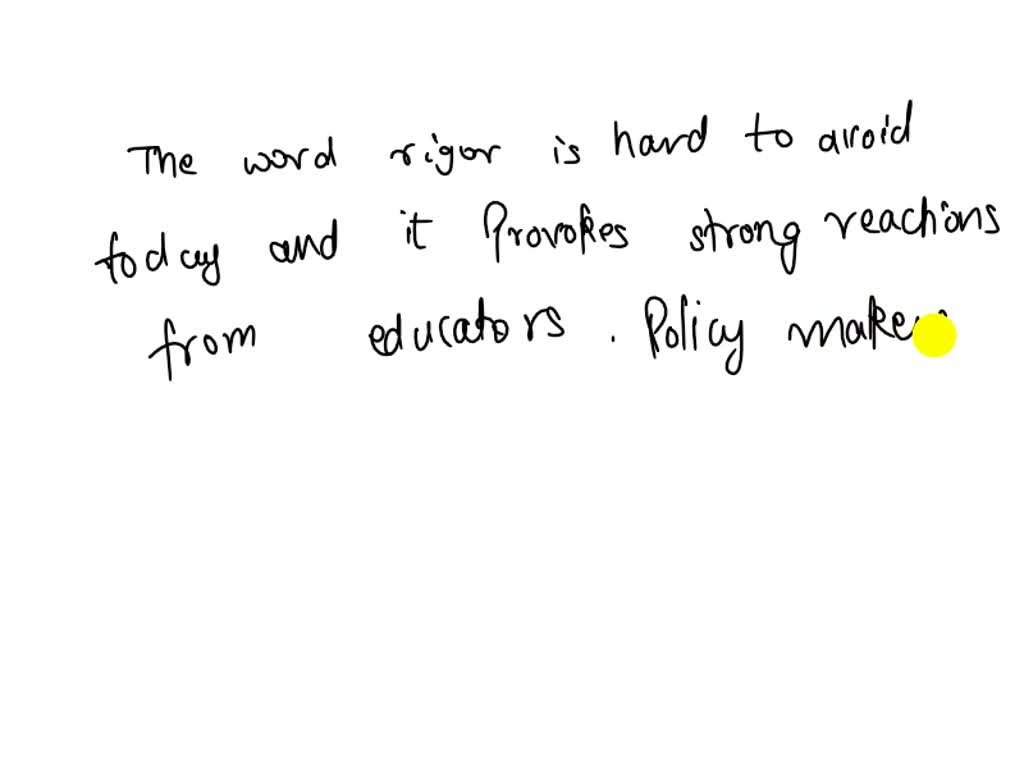 The word rigor is hard to avoid
today and it Provokes strong reactions
from educators. Policy make